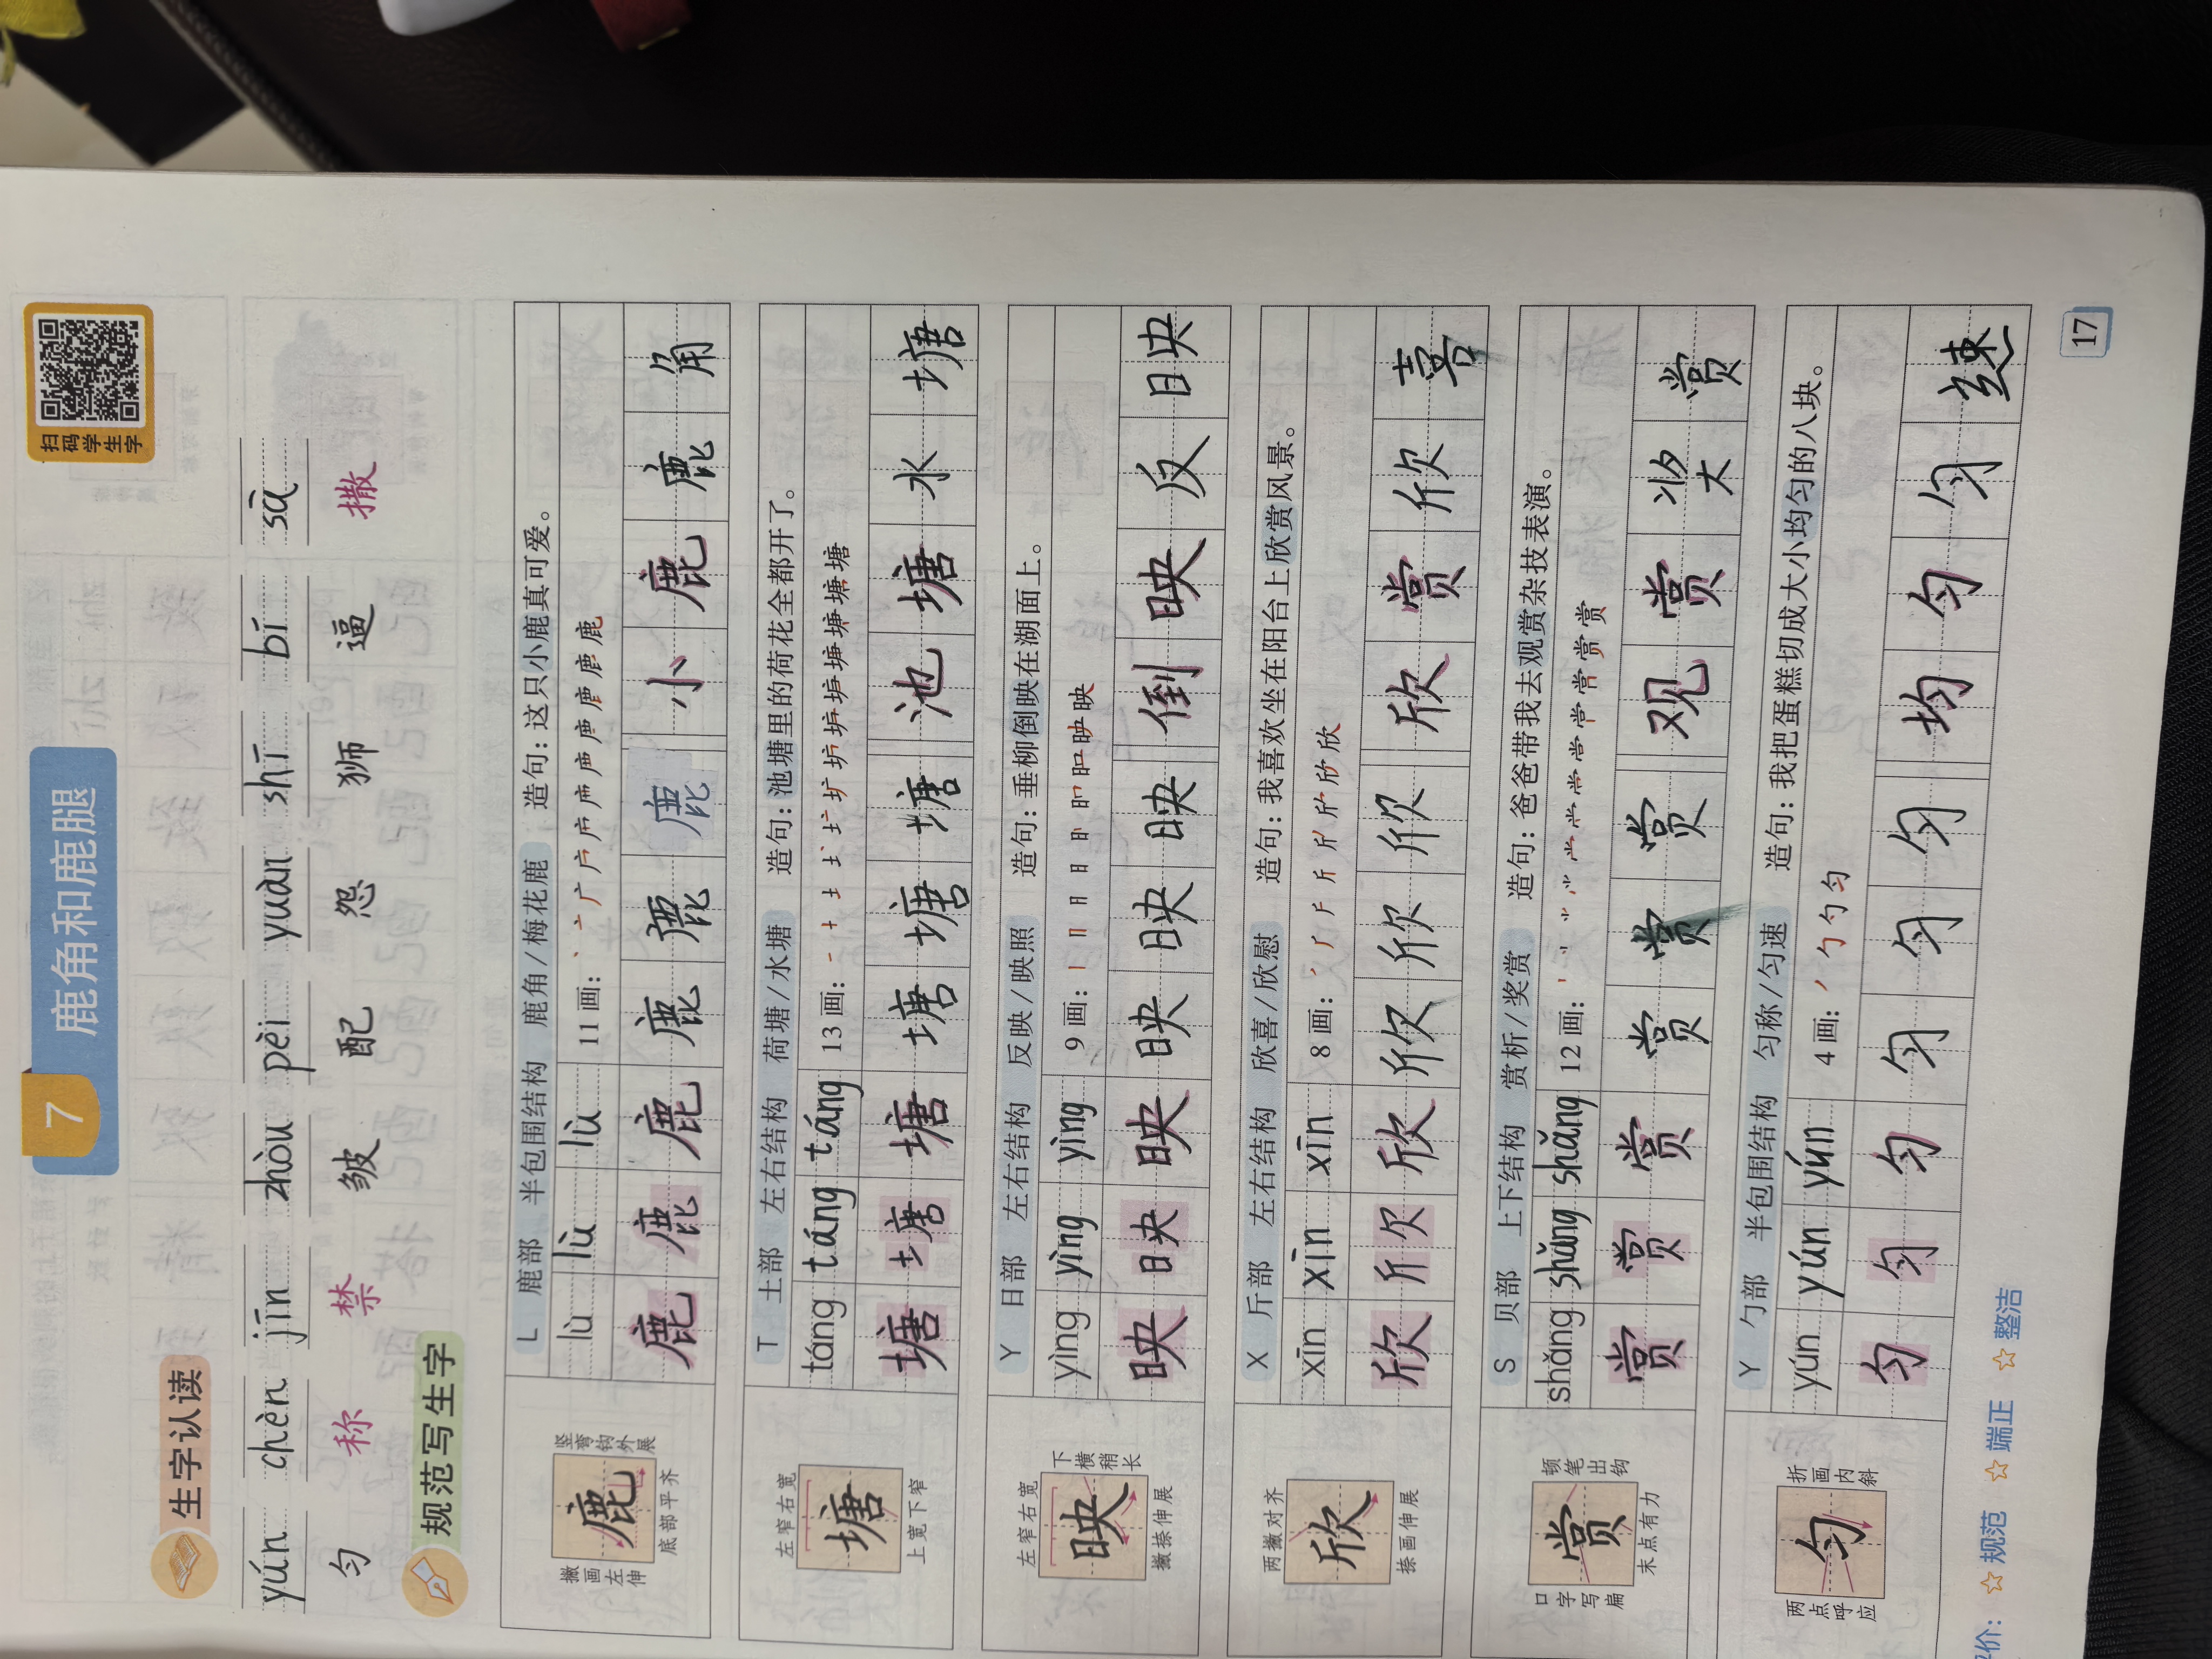 7 鹿角和鹿腿
扫码学生字
生字认读
yún chèn jīn zhòu pèi yuàn shī bī sā
匀 称 禁 皱 配 怨 狮 逼 撒
规范写生字
撇画左伸
竖弯钩外展
鹿
底部平齐
L 鹿部 半包围结构 鹿角/梅花鹿 造句:这只小鹿真可爱。
lù lù lù 11画:
鹿 鹿 鹿 鹿 鹿 鹿 小 鹿 鹿 角
左窄右宽
塘
上宽下窄
T 土部 左右结构 荷塘/水塘 造句:池塘里的荷花全都开了。
táng táng táng 13画:
塘 塘 塘 塘 塘 塘 池 塘 水 塘
左窄右宽
下横稍长
映
撇捺伸展
Y 日部 左右结构 反映/映照 造句:垂柳倒映在湖面上。
yìng yìng yìng 9画:
映 映 映 映 映 映 倒 映 反 映
两撇对齐
欣
捺画伸展
X 斤部 左右结构 欣喜/欣慰 造句:我喜欢坐在阳台上欣赏风景。
xīn xīn xīn 8画:
欣 欣 欣 欣 欣 欣 欣 赏 欣 喜
口字写扁
顿笔出钩
赏
末点有力
S 贝部 上下结构 赏析/奖赏 造句:爸爸带我去观赏杂技表演。
shǎng shǎng shǎng 12画:
赏 赏 赏 赏 赏 赏 观 赏 奖 赏
两点呼应
折画内斜
匀
Y 勹部 半包围结构 匀称/匀速 造句:我把蛋糕切成大小均匀的八块。
yún yún yún 4画:
匀 匀 匀 匀 匀 匀 均 匀 匀 速
价: ☆规范 ☆端正 ☆整洁
17